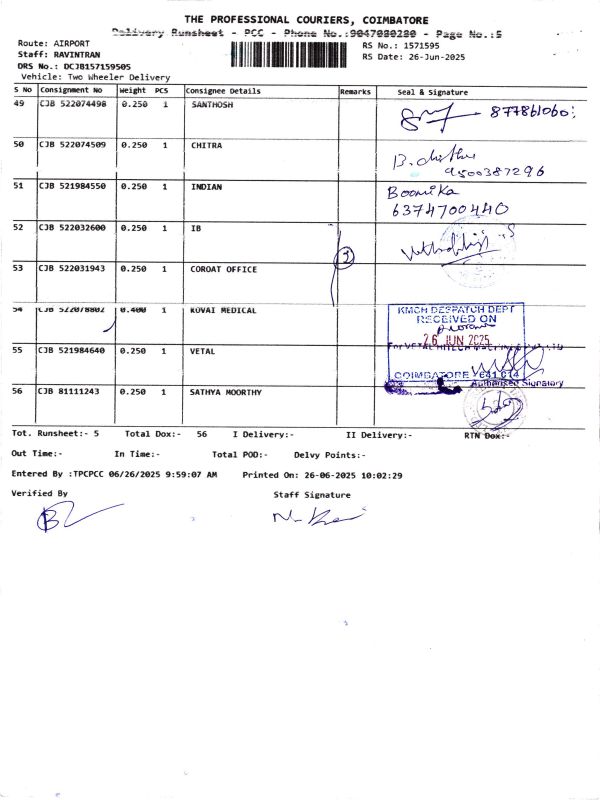 THE PROFESSIONAL COURIERS, COIMBATORE
Delivery Runsheet - PCC - Phone No.:9047080280 - Page No.:5
Route: AIRPORT
Staff: RAVINTRAN
DRS No.: DCJB157159505
Vehicle: Two Wheeler Delivery
RS No.: 1571595
RS Date: 26-Jun-2025
S No Consignment No Weight PCS Consignee Details Remarks Seal & Signature
49 CJB 522074498 0.250 1 SANTHOSH
50 CJB 522074509 0.250 1 CHITRA
9500387296
51 CJB 521984550 0.250 1 INDIAN Boomika
6374700440
52 CJB 522032600 0.250 1 IB
2
53 CJB 522031943 0.250 1 COROAT OFFICE
54 CJB 522078802 0.400 1 KOVAI MEDICAL
KMCH DESPATCH DEPT
RECEIVED ON
26 JUN 2025
COIMBATORE - 641 014
55 CJB 521984640 0.250 1 VETAL
Authorised Signatory
56 CJB 81111243 0.250 1 SATHYA MOORTHY
Tot. Runsheet:- 5 Total Dox:- 56 I Delivery:- II Delivery:- RTN Dox:-
Out Time:- In Time:- Total POD:- Delvy Points:-
Entered By :TPCPCC 06/26/2025 9:59:07 AM Printed On: 26-06-2025 10:02:29
Verified By Staff Signature